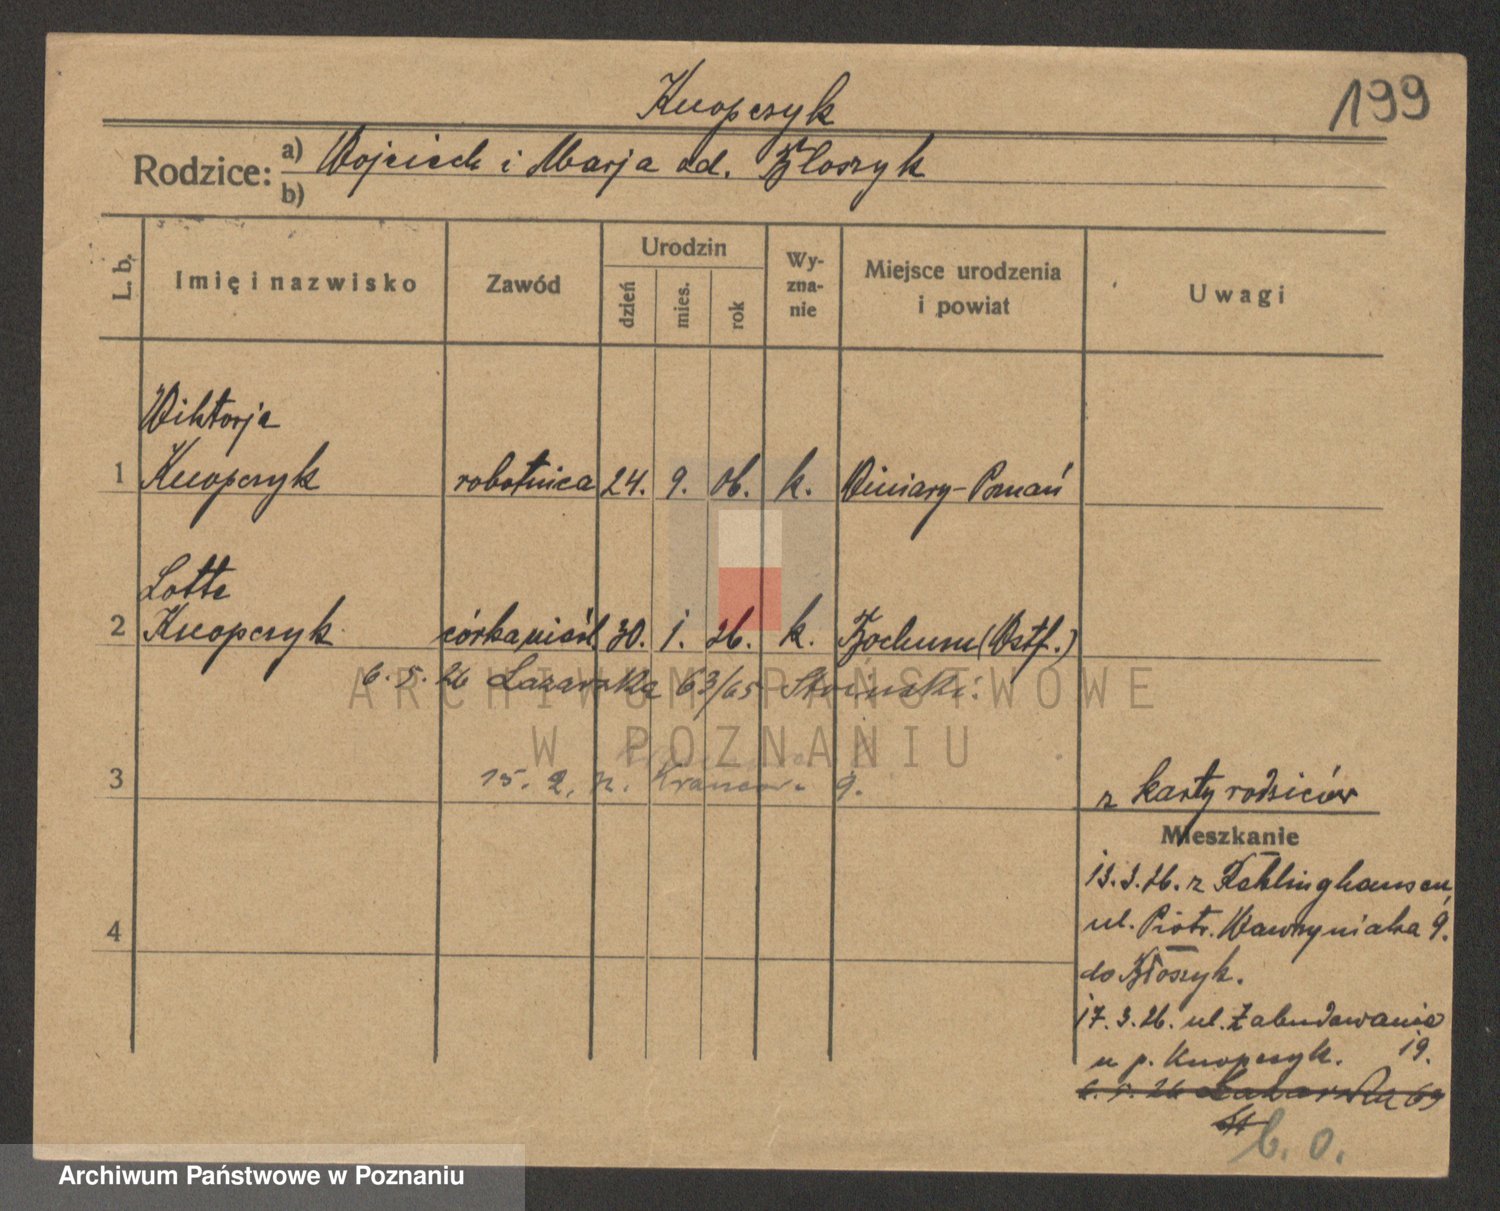 Knopczyk
199
Rodzice: a) Wojciech i Marja od. Błoszyk
b)
L. b.
Imię i nazwisko
Zawód
Urodzin
dzień
mies.
rok
Wy-
zna-
nie
Miejsce urodzenia
i powiat
Uwagi
Wiktorja
1 Knopczyk robotnica 24. 9. 06. k. Winiary-Poznań
Lotte
2 Knopczyk córka nieśl. 30. 1. 26. k. Bochum (Wstf.)
6. 5. 26 Lazarska 63/65
3
15. 2.
9.
z karty rodziców
Mieszkanie
13.3.26. z
ul. Piotr. Wawrzyniaka 9.
do Błoszyk.
17.3.26. ul. Zabudowania
u p. Knopczyk. 19.
6. 5. 26 Lazarska 63
b. o.
ARCHIWUM PAŃSTWOWE
W POZNANIU
4
Archiwum Państwowe w Poznaniu